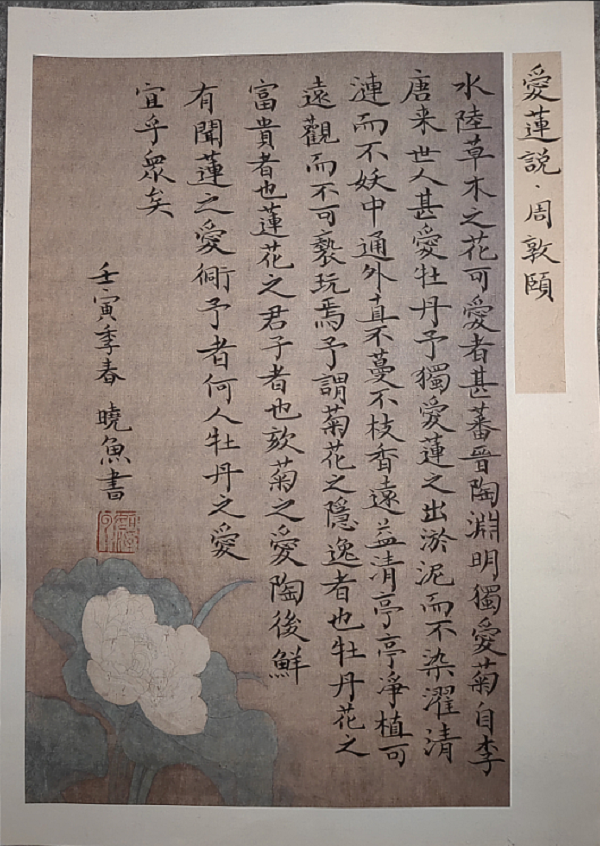 愛蓮説·周敦頤
水陸草木之花可愛者甚蕃晉陶淵明獨愛菊自李
唐来世人甚愛牡丹予獨愛蓮之出淤泥而不染濯清
漣而不妖中通外直不蔓不枝香遠益清亭亭淨植可
遠觀而不可褻玩焉予謂菊花之隱逸者也牡丹花之
富貴者也蓮花之君子者也欬菊之愛陶後鮮
有聞蓮之愛衕予者何人牡丹之愛
宜乎眾矣
壬寅季春 曉魚書